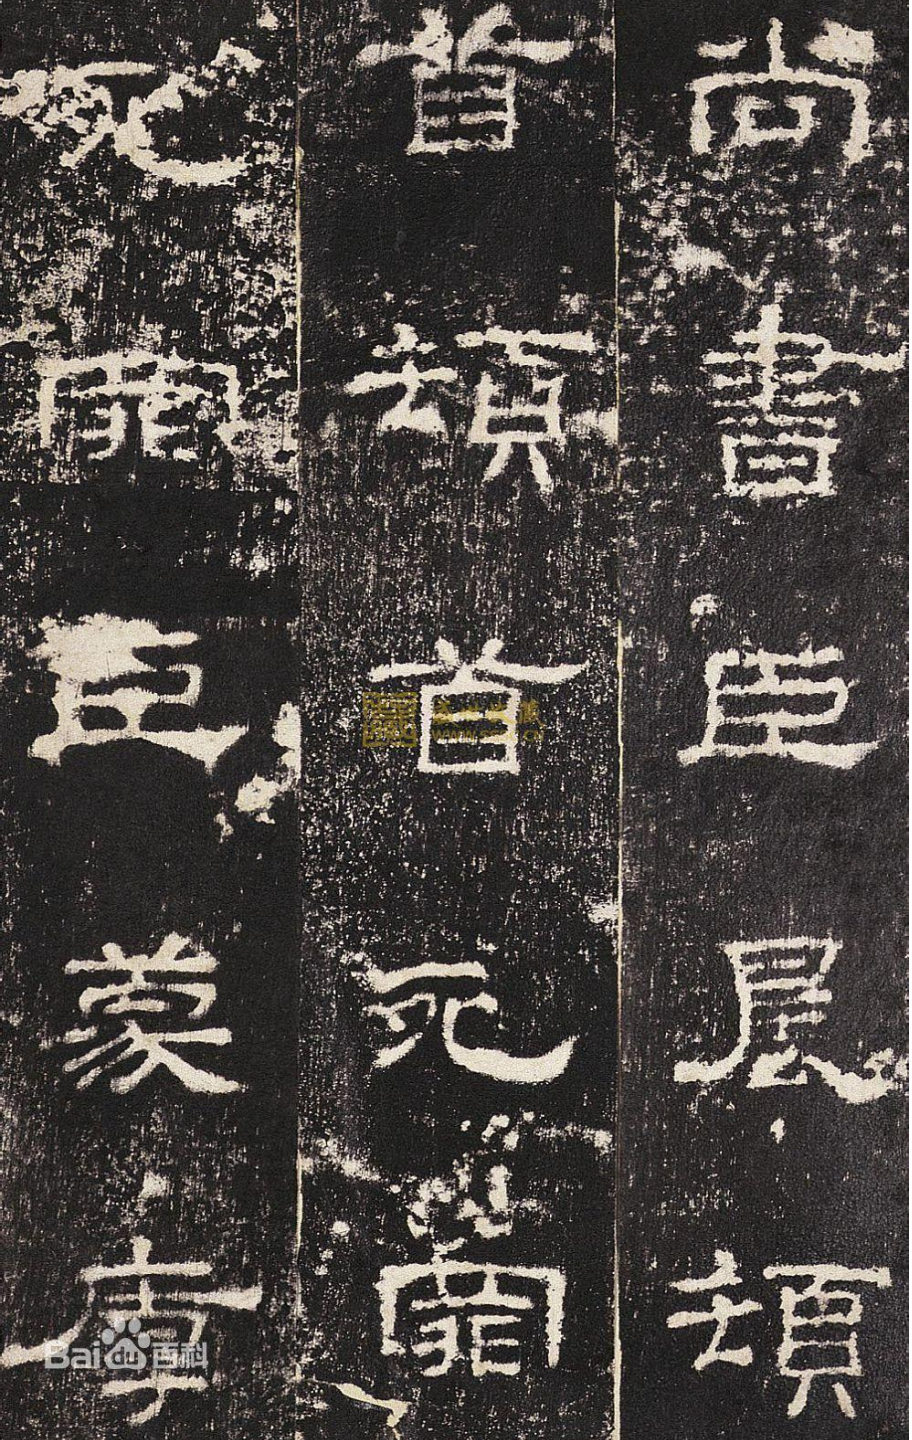 尚書臣晨頓
首頓首死罪
死罪臣蒙厚
Baidu百科